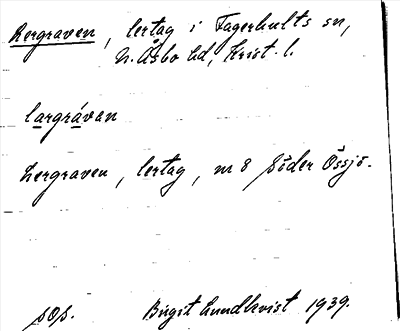 Lergraven, lertag i Fagerhults sn,
N. Åsbo hd, Krist. l.
largrávan
Lergraven, lertag, m 8 Söder Össjö.
sos.
Birgit Lundkvist 1939.